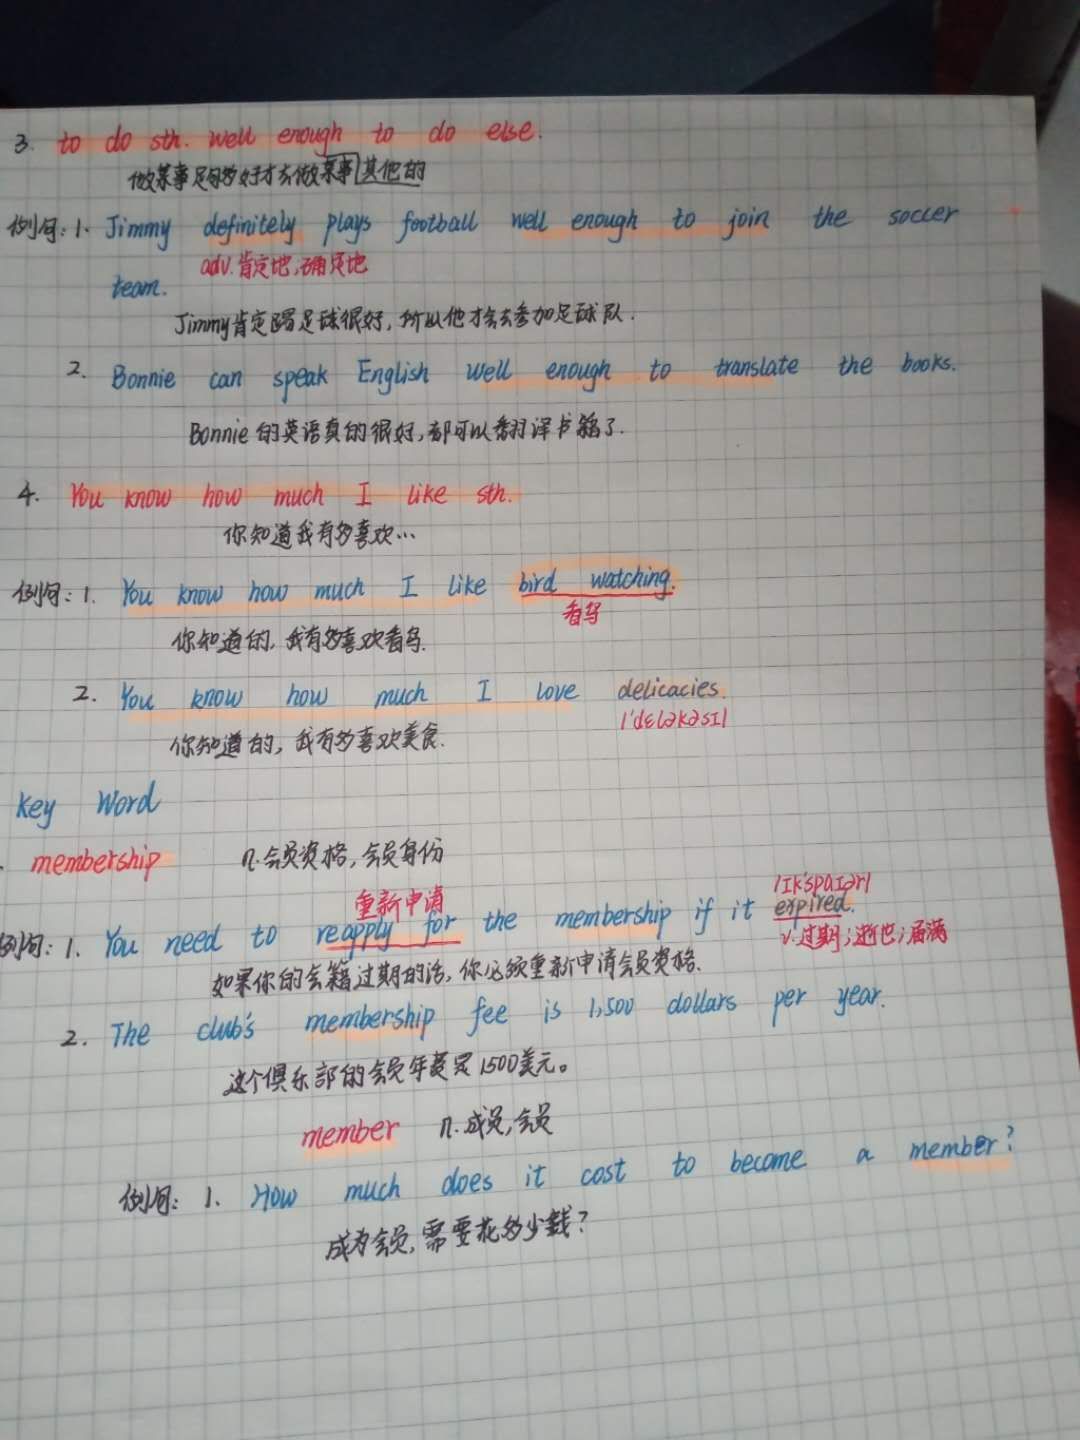 3. to do sth. well enough to do else.
做某事足够好才去做某事其他的
例句: 1. Jimmy definitely plays football well enough to join the soccer
adv. 肯定地,确定地
team.
Jimmy肯定踢足球很好,所以他才会去参加足球队.
2. Bonnie can speak English well enough to translate the books.
Bonnie的英语真的很好,都可以翻译书籍了.
4. You know how much I like sth.
你知道我有多喜欢…
例句: 1. You know how much I like bird watching.
看鸟
你知道的,我有多喜欢看鸟.
2. You know how much I love delicacies.
/'dɛləkəsɪ/
你知道的,我有多喜欢美食.
Key Word
membership n.会员资格,会员身份
重新申请 /ɪk'spaɪər/
例句: 1. You need to reapply for the membership if it expired.
v.过期;逝世;届满
如果你的会籍过期的话,你必须重新申请会员资格.
2. The club's membership fee is 1,500 dollars per year.
这个俱乐部的会员年费是1500美元。
member n.成员,会员
例句: 1. How much does it cost to become a member?
成为会员,需要花多少钱?